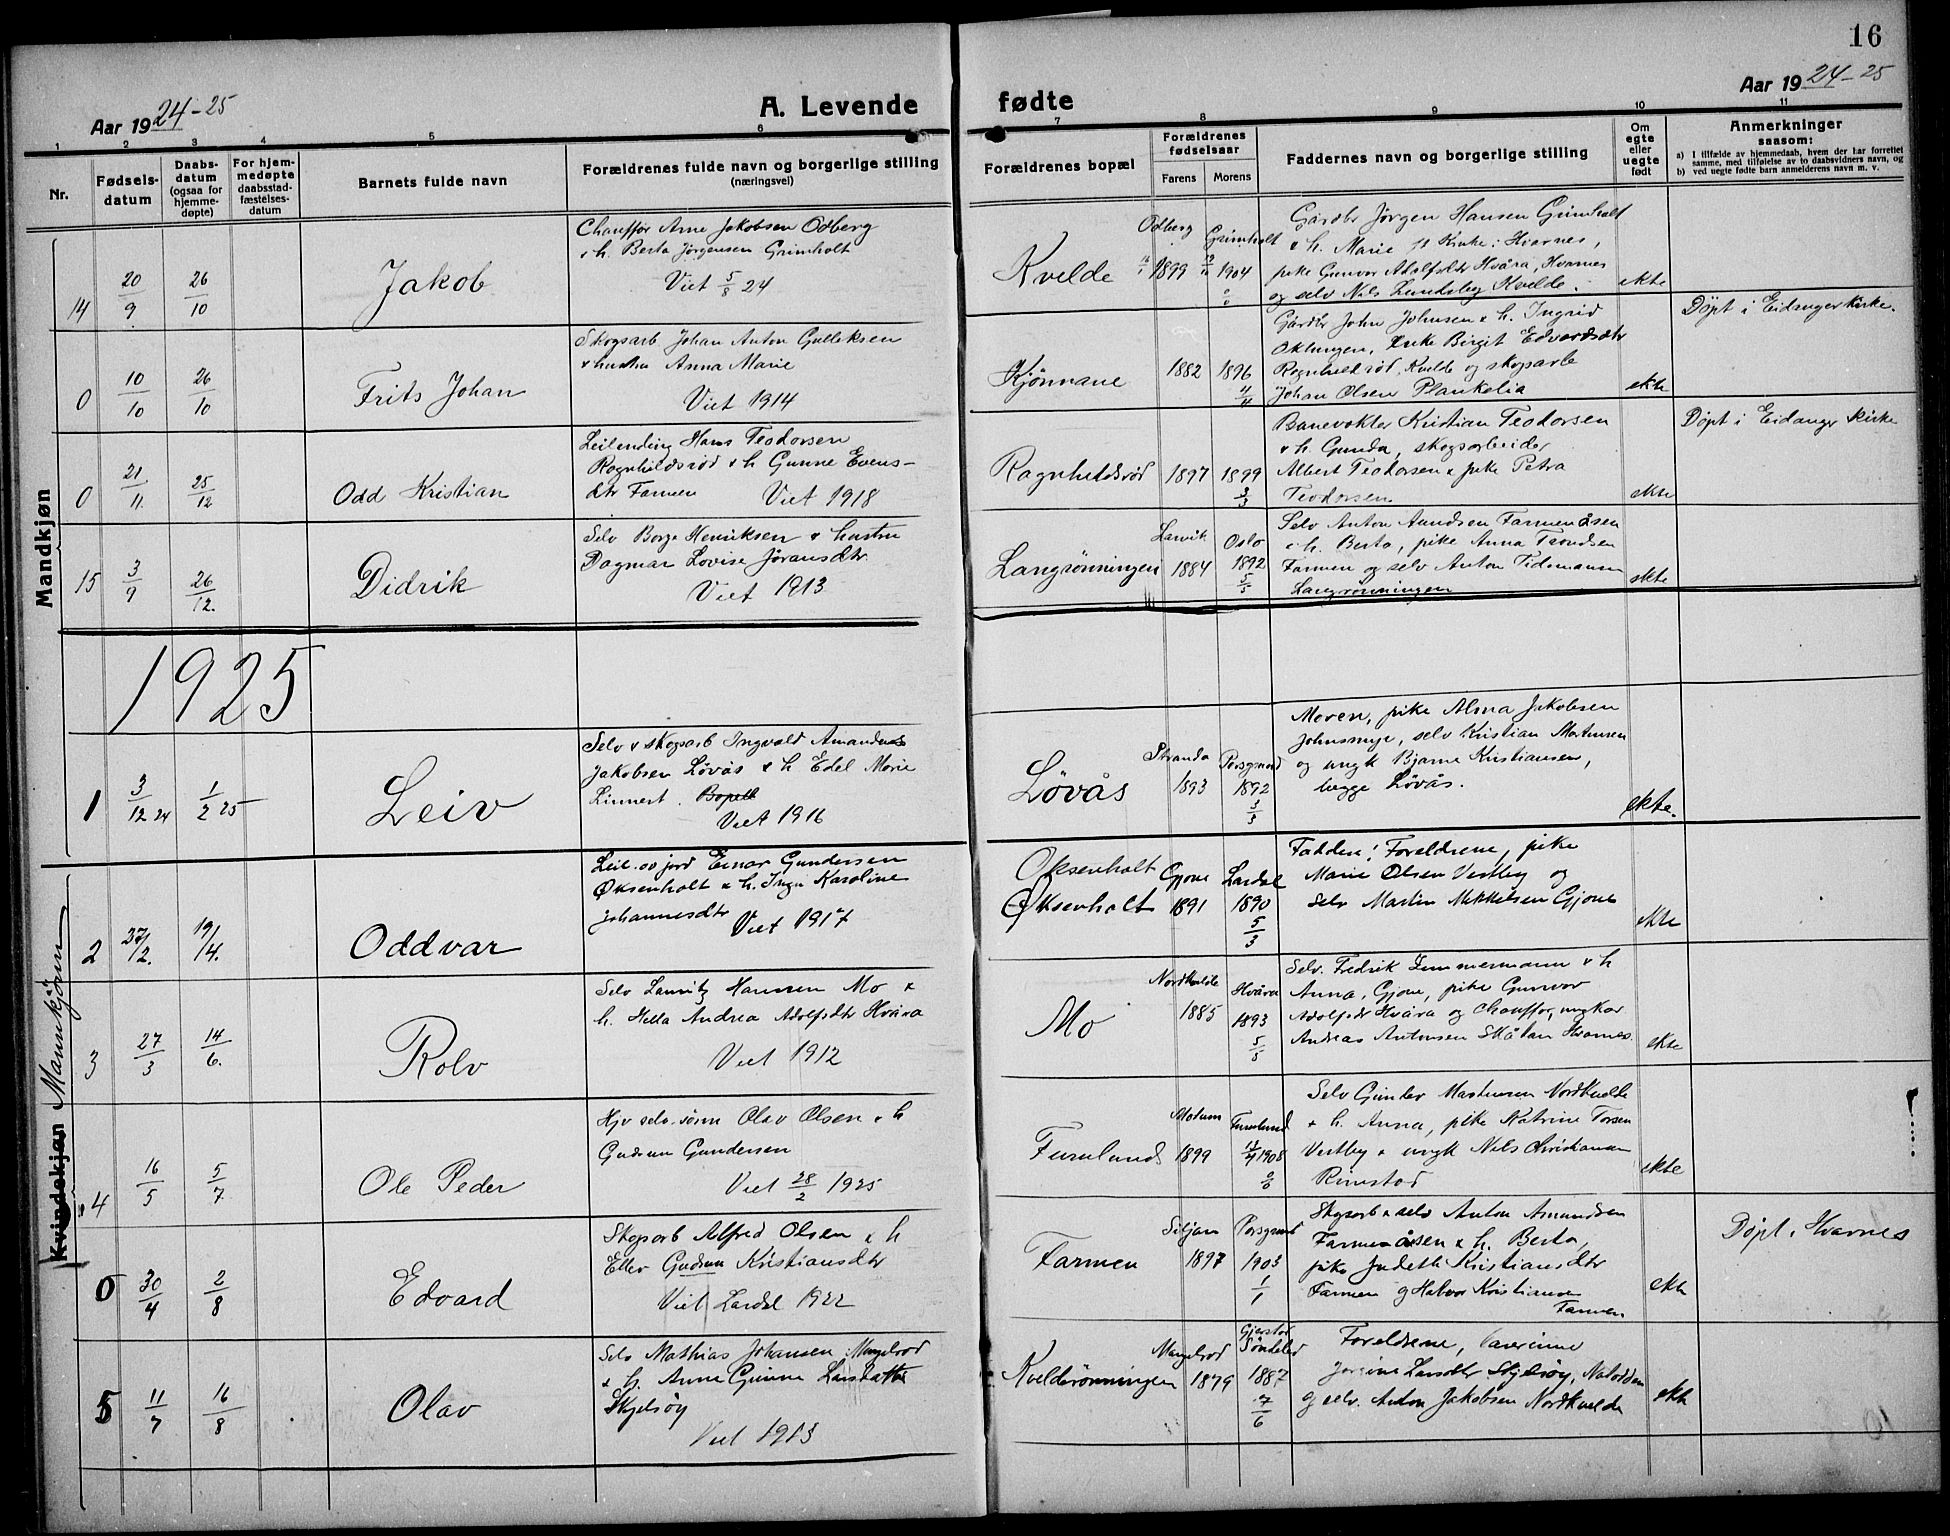 16
Aar 1924-25
A. Levende fødte
Aar 1924-25
1 2 3 4 5 6 7 8 9 10 11
Nr.
Fødsels-
datum
Daabs-
datum
(ogsaa for
hjemme-
døpte)
For hjem-
medøpte
daabsstad-
fæstelses-
datum
Barnets fulde navn
Forældrenes fulde navn og borgerlige stilling
(næringsvei)
Forældrenes bopæl
Forældrenes
fødselsaar
Farens Morens
Faddernes navn og borgerlige stilling
Om
egte
eller
uegte
født
Anmerkninger
saasom:
a) I tilfælde av hjemmedaab, hvem der har forrettet
samme, med tilføielse av to daabsvidners navn, og
b) ved uegte fødte barn anmelderens navn m. v.
Mandkjøn
14 20/9 26/10 Jakob
Chauffør Arne Jakobsen Odberg
& h. Berta Jørgensen Grimholt
Viet 5/8 24
Kvelde
Odberg 1899
Grimholt 1904
Gårdbr Jörgen Hansen Grimholt
& h. Marie Kirke: Hvarnes,
pike Gunvor Adolfsdtr Hvåra, Hvarnes
og selv Nils Lundsbey Kvelde.
ekte
0 10/10 26/10 Frits Johan
Skogsarb Johan Anton Gulleksen
& hustru Anna Marie
Viet 1914
Kjönnane
1882 1896 11/4
Gårdbr John Johnsen & h. Ingrid
Oklungen, Pike Birgit Edvardsdtr
Rognhildsröd, Kvelde og skogsarb
Johan Olsen Plankelia
ekte
Döpt i Eidanger kirke.
0 21/11. 25/12 Odd Kristian
Leilending Hans Teodorsen
Rognhildsröd & h Gunne Evens-
dtr Farmen Viet 1918
Rognhildsröd
1897 1899 3/3
Banevokter Kristian Teodorsen
& h. Gunda, skogsarbeider
Albert Teodorsen & pike Petra
Teodorsen
ekte
Döpt i Eidanger kirke
15 3/9 26/12. Didrik
Selv Borge Henriksen & hustru
Dagmar Lovise Jöransdtr.
Viet 1913
Langrönningen
Larvik 1884
Oslo 1892 5/5
Selv Anton Amundsen Farmenåsen
& h. Berta, pike Anna Trondsen
Farmen og selv Anton Tidemansen
Langrönningen
ekte
1925
1 3/12 24 1/2 25 Leiv
Selv & skogsarb Ingvald Amandus
Jakobsen Lövås & h Edel Marie
Linnert. Bopell
Viet 1916
Lövås
Stranda 1893
Porsgrund 1892 3/3
Moren, pike Alma Jakobsen
Johnsmyr, selv Kristian Mortensen
og ungk Bjarne Kristiansen,
begge Lövås.
ekte.
Kvindekjøn Mannkjönn
2 27/2. 19/4. Oddvar
Leil. av jord Einar Gundersen
Øksenholt & h. Inga Karoline
Johannesdtr Viet 1917
Oksenholt
Øksenholt
Gjone 1891
Lardal 1890 5/3
Faddere: Foreldrene, pike
Marie Olsen Vestby og
selv Martin Mikkelsen Gjone
ekte
3 27/3 14/6. Rolv
Selv Lauritz Hansen Mo &
h. Helle Andrea Adolfsdtr Hvåra
Viet 1912
Mo
Nordkvelde 1885
Hvåra 1893 5/5
Selv. Fedrik Zimmermann & h
Anna, Gjone, pike Gunvor
Adolfsdtr Hvåra og Chauffør, ungkar
Andreas Antonsen Skålan Hvarnes.
ekte
4 16/5 5/7 Ole Peder
Hjv selv. sönn Olav Olsen & h
Gudrun Gundersen
Viet 28/2 1925
Furulund
Modum 1899
Furulund 1908 0/0
Selv Gunder Martinsen Nordkvelde
& h. Anna, pike Katrine Torsen
Vestby & ungk Nils Christiansen
Rimstad
ekte
0 30/4 2/8 Edvard
Skogsarb Alfred Olsen & h
Ellev Gudrun Kristiansdtr
Viet Lardal 1922
Farmen
Siljan 1897
Porsgrund 1903 1/1
Skogsarb & selv Anton Amundsen
Farmenåsen & h. Berta,
pike Judeth Kristiansdtr
Farmen og Halvor Kristiansen
Farmen
ekte
Döpt i Hvarnes
5 11/7 16/8 Olav
Selv Mathias Johansen Mangelrod
& h. Anne Gunne Larsdatter
Skjelsöy
Viet 1913
Kvelderönningen
Mangelrod 1879
Gjerstad
Söndeled 1887 7/6
Foreldrene, lærerinne
Jorgine Larsdtr Skjelsöy, Notodden
og selv. Anton Jakobsen Nordkvelde
ekte